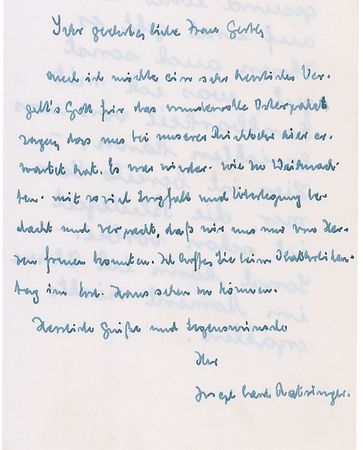 Sehr geehrte, liebe Frau
auch ich möchte ein sehr herzliches Ver-
gelt's Gott für das wundervolle Osterpaket
sagen, das uns bei unserer Rückkehr hier er-
wartet hat. Es war wieder - wie zu Weihnach-
ten - mit so viel Sorgfalt und Überlegung be-
dacht und verpackt, daß wir uns nur von Her-
zen freuen konnten. Ich hoffe, Sie beim
tag im Haus sehen zu können.
Herzliche Grüße und Segenswünsche
Ihr
Joseph Card. Ratzinger.